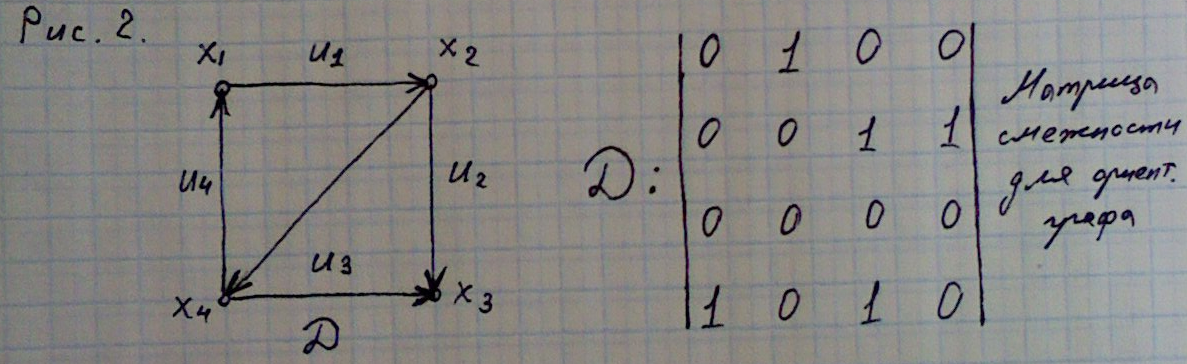 Рис. 2.
x1 u1 x2
u4 u2
u3
x4 x3
D
D:
0 1 0 0
0 0 1 1
0 0 0 0
1 0 1 0
Матрица
смежности
для ориент.
графа